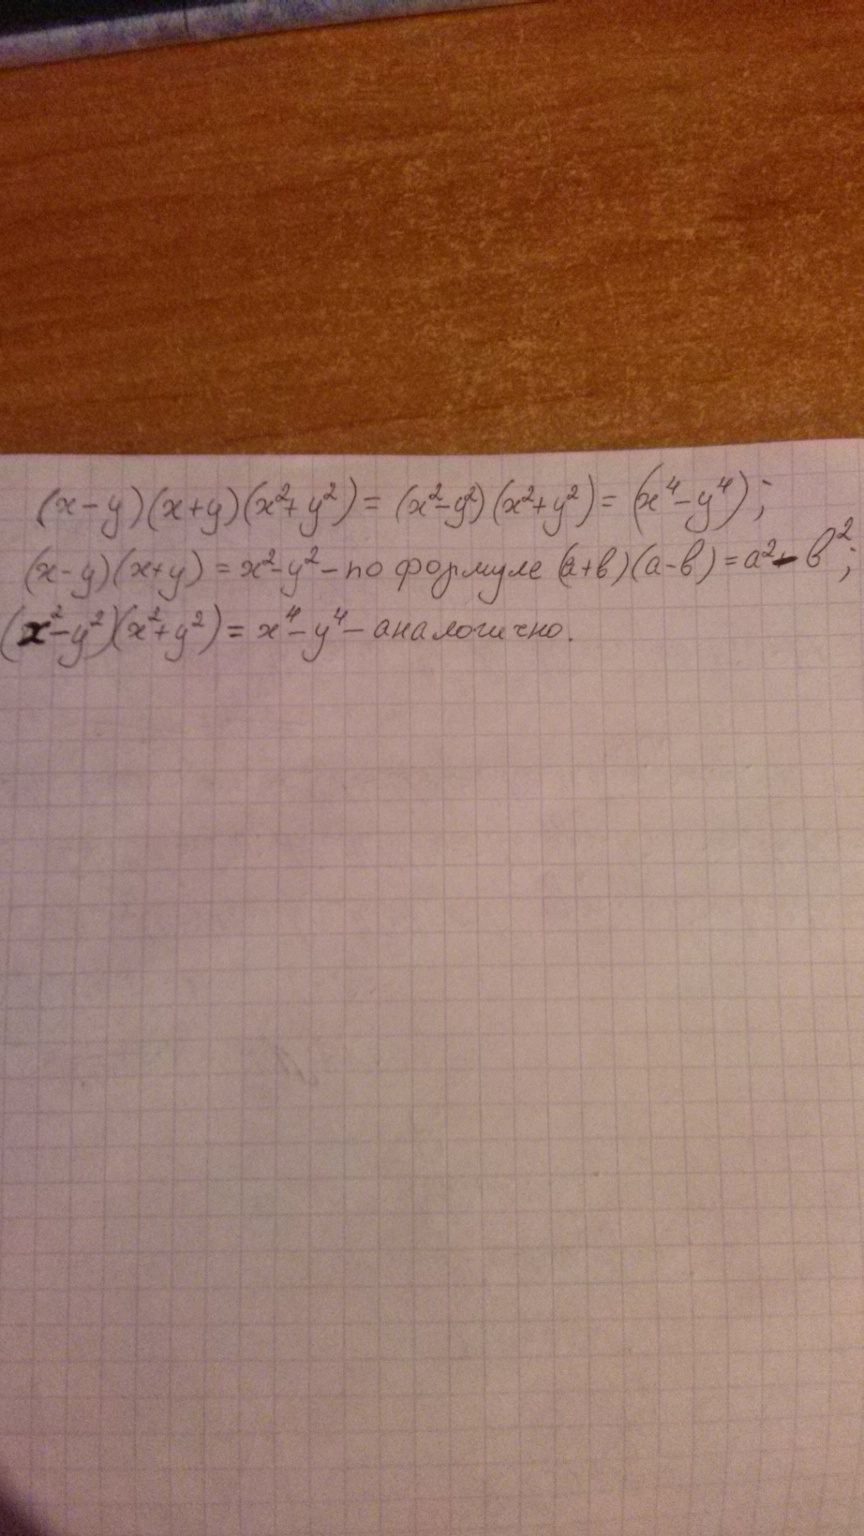 (x-y)(x+y)(x²+y²)=(x²-y²)(x²+y²)=(x⁴-y⁴);
(x-y)(x+y)=x²-y²-по формуле (а+в)(а-в)=а²-в²;
(x²-y²)(x²+y²)=x⁴-y⁴-аналогично.